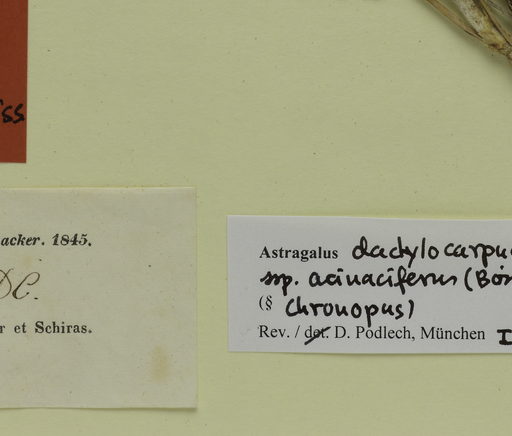 iss.
acker. 1845.
DC.
r et Schiras.
Astragalus dactylocarpu
ssp. acinaciferus (Bois
(§ Chronopus)
Rev. / det. D. Podlech, München